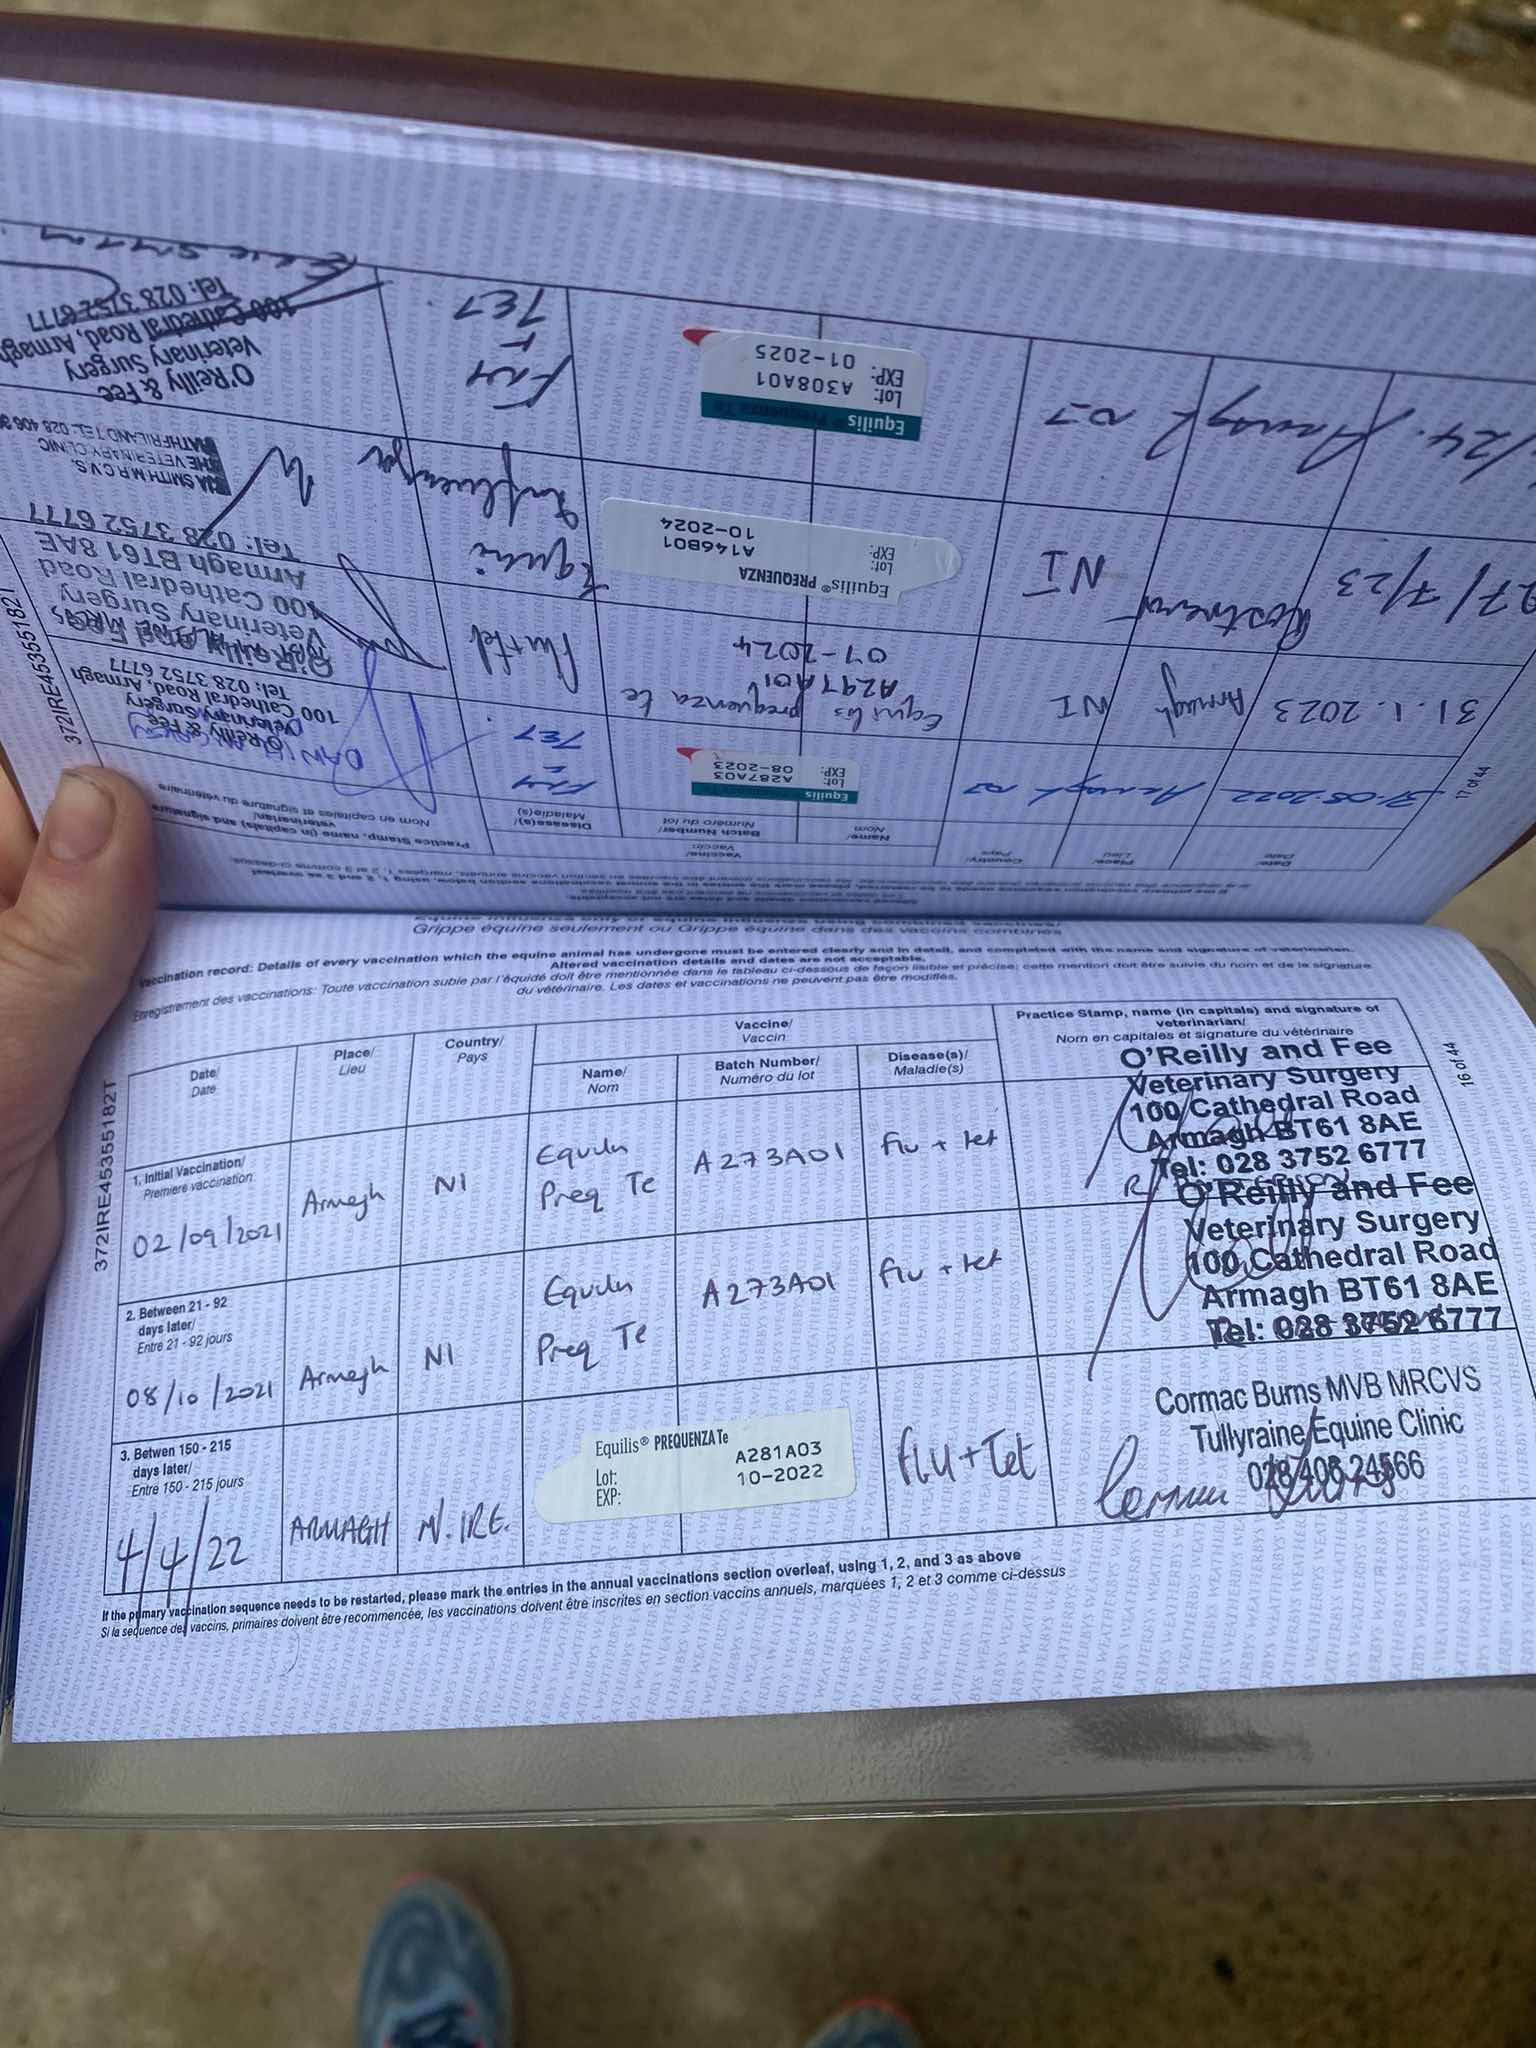 Equine influenza only or equine influenza using combined vaccines/
Grippe équine seulement ou Grippe équine dans des vaccins combinés
Vaccination record: Details of every vaccination which the equine animal has undergone must be entered clearly and in detail, and completed with the name and signature of veterinarian.
Altered vaccination details and dates are not acceptable.
Enregistrement des vaccinations: Toute vaccination subie par l'équidé doit être mentionnée dans le tableau ci-dessous de façon lisible et précise; cette mention doit être suivie du nom et de la signature
du vétérinaire. Les dates et vaccinations ne peuvent pas être modifiés.
372IRE45355182T
16 of 44
Date/
Date
Place/
Lieu
Country/
Pays
Vaccine/
Vaccin
Name/
Nom
Batch Number/
Numéro du lot
Disease(s)/
Maladie(s)
Practice Stamp, name (in capitals) and signature of
veterinarian/
Nom en capitales et signature du vétérinaire
1. Initial Vaccination/
Premiere vaccination
02/09/2021
Armagh
NI
Preq Te
A273A01
flu + tet
O'Reilly and Fee
Veterinary Surgery
100 Cathedral Road
Armagh BT61 8AE
Tel: 028 3752 6777
2. Between 21 - 92
days later/
Entre 21 - 92 jours
08/10/2021
Armagh
NI
Preq Te
A273A01
flu + tet
O'Reilly and Fee
Veterinary Surgery
100 Cathedral Road
Armagh BT61 8AE
Tel: 028 3752 6777
3. Betwen 150 - 215
days later/
Entre 150 - 215 jours
4/4/22
ARMAGH
N. IRE.
Equilis® PREQUENZA Te
Lot: A281A03
EXP: 10-2022
FLU + Tet
Cormac Burns MVB MRCVS
Tullyraine Equine Clinic
028 406 24566
If the primary vaccination sequence needs to be restarted, please mark the entries in the annual vaccinations section overleaf, using 1, 2, and 3 as above
Si la sequence des vaccins, primaires doivent être recommencée, les vaccinations doivent être inscrites en section vaccins annuels, marquées 1, 2 et 3 comme ci-dessus
372IRE45355182T
17 of 44
Date/
Date
Place/
Lieu
Country/
Pays
Vaccine/
Vaccin
Name/
Nom
Batch Number/
Numéro du lot
Disease(s)/
Maladie(s)
Practice Stamp, name (in capitals) and signature
veterinarian/
Nom en capitales et signature du vétérinaire
31.08.2022
Armagh
Equilis
Lot: A287A03
EXP: 08-2023
TET
O'Reilly & Fee
Veterinary Surgery
100 Cathedral Road, Armagh
Tel: 028 3752 6777
31.1.2023
Armagh
NI
Equilis prequenza te
A297A01
07-2024
Flu+tet
O'Reilly and Fee
Veterinary Surgery
100 Cathedral Road
Armagh BT61 8AE
Tel: 028 3752 6777
27/7/23
NI
Equilis® PREQUENZA
Lot: A146B01
EXP: 10-2024
Equine
Influenza
SMITH M.R.C.V.S.
THE VETERINARY CLINIC
RATHFRILAND TEL: 028 406
/24.
Armagh
Equilis® Prequenza Te
Lot: A308A01
EXP: 01-2025
TET
O'Reilly & Fee
Veterinary Surgery
100 Cathedral Road, Armagh
Tel: 028 3752 6777